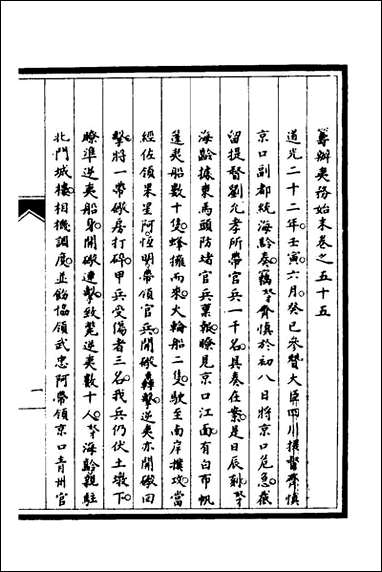 籌辦夷務始末卷之五十五
道光二十二年壬寅六月癸巳參贊大臣四川提督齊慎
京口副都統海齡奏竊努齊慎於初八日將京口危急截
留提督劉允孝所帶官兵一千名具奏在案是日辰刻努
海齡據東馬頭防堵官兵稟報瞭見京口江面有白布帆
篷夷船數十隻蜂擁而來火輪船二隻駛至南岸撲攻當
經佐領果星阿恆明帶領官兵開礮轟擊逆夷亦開礮回
擊將一帶礮房打碎甲兵受傷者三名我兵仍伏土墩下
瞭準逆夷船身開礮連擊致斃逆夷數十人努海齡親駐
北門城樓相機調度並飭協領武忠阿帶領京口青州官
一